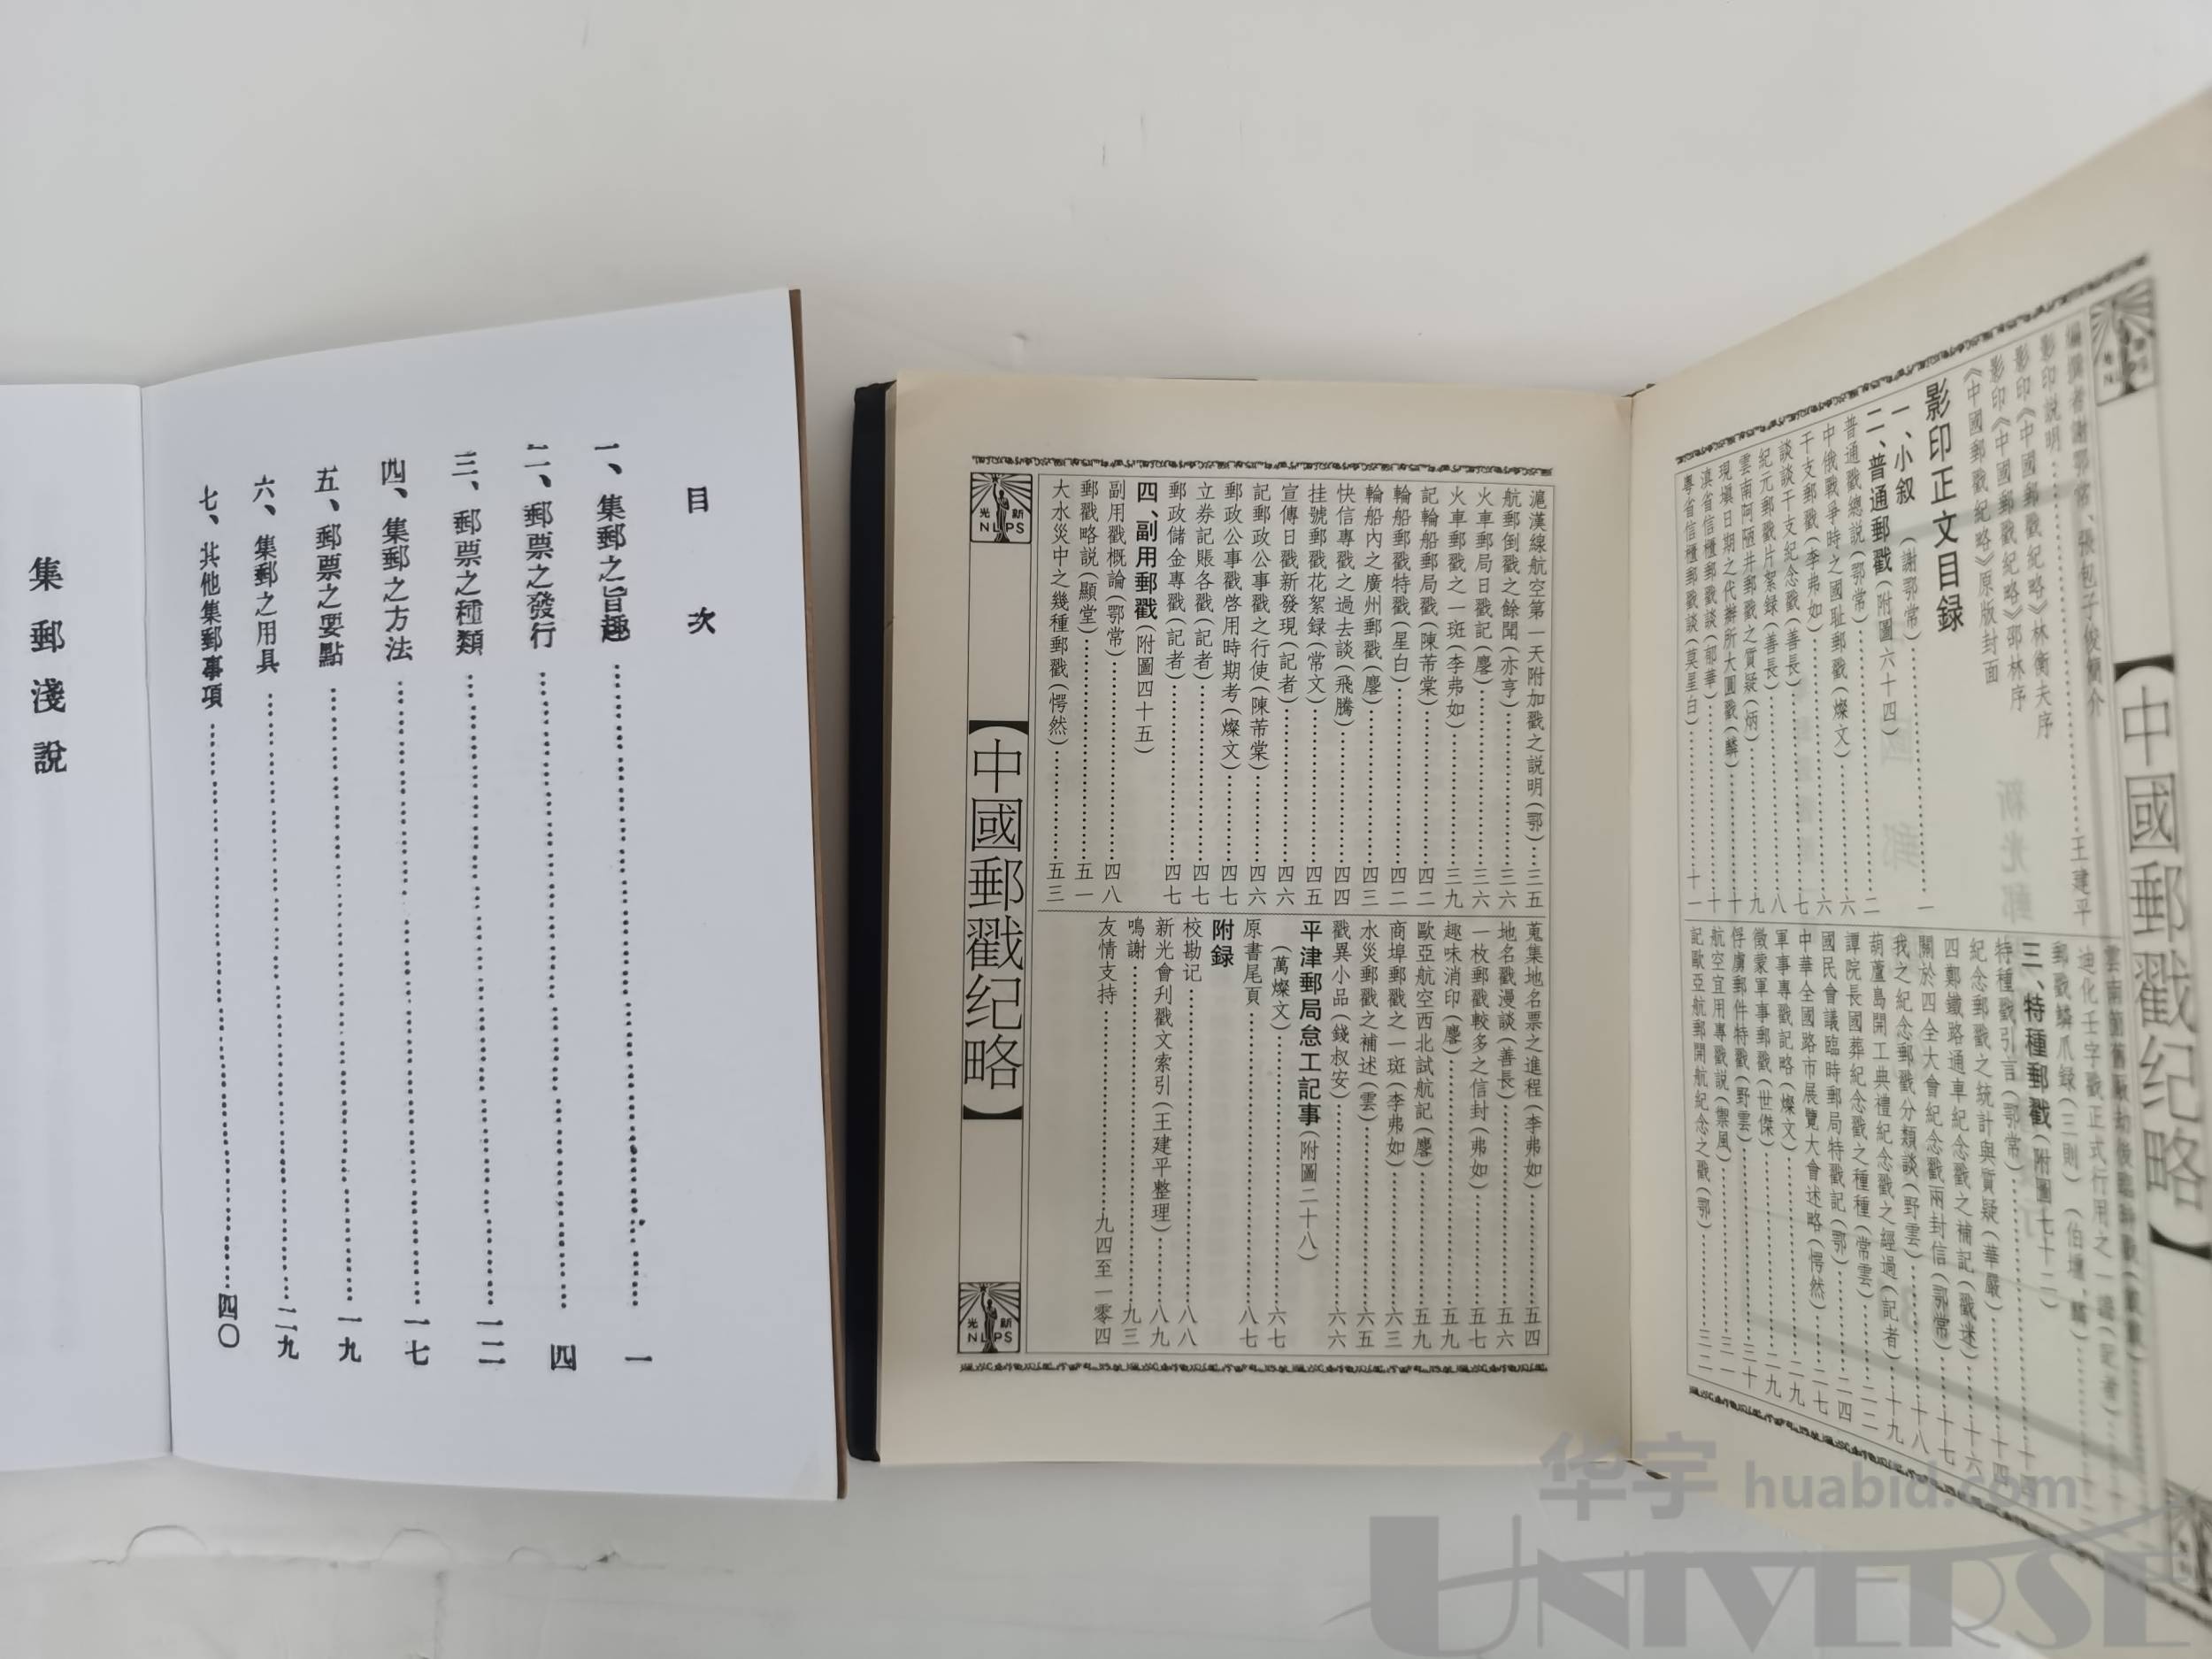 集郵淺說
目次
一、集郵之旨趣……一
二、郵票之發行……四
三、郵票之種類……一二
四、集郵之方法……一七
五、郵票之要點……一九
六、集郵之用具……二九
七、其他集郵事項……四〇
【中國郵戳纪略】
編撰者謝鄂常、張包子俊簡介……王建平
影印說明……
影印《中國郵戳紀略》林衡夫序
影印《中國郵戳紀略》邵林序
《中國郵戳紀略》原版封面
影印正文目録
一、小叙(謝鄂常)……一
二、普通郵戳(附圖六十四)
普通戳總説(鄂常)……二
中俄戰爭時之國耻郵戳(燦文)……六
干支郵戳(李弗如)……六
談談干支紀念戳(善長)……七
紀元郵戳片絮録(善長)……八
雲南阿陋井郵戳之質疑(炳)……九
現塡日期之代辦所大圓戳(麟)……十
滇省信櫃郵戳談(郁華)……十
粵省信櫃郵戳談(莫星白)……十一
郵戳鱗爪録(三則)
三、特種郵戳(附圖七十二)
特種戳引言(鄂常)……十
紀念郵戳之統計與質疑(華嚴)……十四
四鄭鐵路通車紀念戳之補記(戳迷)……十六
關於四全大會紀念戳兩封信(鄂常)……十七
我之紀念郵戳分類談(野雲)……十八
葫蘆島開工典禮紀念戳之經過(記者)……十九
譚院長國葬紀念戳之種種(常雲)……二二
國民會議臨時郵局特戳記(鄂)……二四
中華全國路市展覽大會述略(愕然)……二七
軍事專戳記略(燦文)……二九
徵蒙軍事郵戳(世傑)……二九
俘虜郵件特戳(野雲)……三十
航空宜用專戳説(禦風)……三一
記歐亞航郵開航紀念之戳(鄂)……三二
滬漢線航空第一天附加戳之説明(鄂)……三五
航郵倒戳之餘聞(亦亨)……三六
火車郵局日戳記(麐)……三六
火車郵戳之一斑(李弗如)……三九
記輪船郵局戳(陳芾棠)……四二
輪船郵戳特戳(星白)……四二
輪船内之廣州郵戳(麐)……四三
快信專戳之過去談(飛騰)……四四
挂號郵戳花絮録(常文)……四五
宣傳日戳新發現(記者)……四六
記郵政公事戳之行使(陳芾棠)……四六
郵政公事戳啓用時期考(燦文)……四七
立券記賬各戳(記者)……四七
郵政儲金專戳(記者)……四七
四、副用郵戳(附圖四十五)
副用戳概論(鄂常)……四八
郵戳略説(顯堂)……五一
大水災中之幾種郵戳(愕然)……五三
蒐集地名票之進程(李弗如)……五四
地名戳漫談(善長)……五六
一枚郵戳較多之信封(弗如)……五七
趣味消印(麐)……五九
歐亞航空西北試航記(麐)……五九
商埠郵戳之一斑(李弗如)……六三
水災郵戳之補述(雲)……六五
戳異小品(錢叔安)……六六
平津郵局怠工記事(附圖二十八)
(萬燦文)……六七
原書尾頁……八七
附録
校勘记……八八
新光會刋戳文索引(王建平整理)……八九
鳴謝……九三
友情支持……九四至一零四
新光
NLPS
【中國郵戳纪略】
新光
NLPS
华宇 huabid.com
UNIVERSE